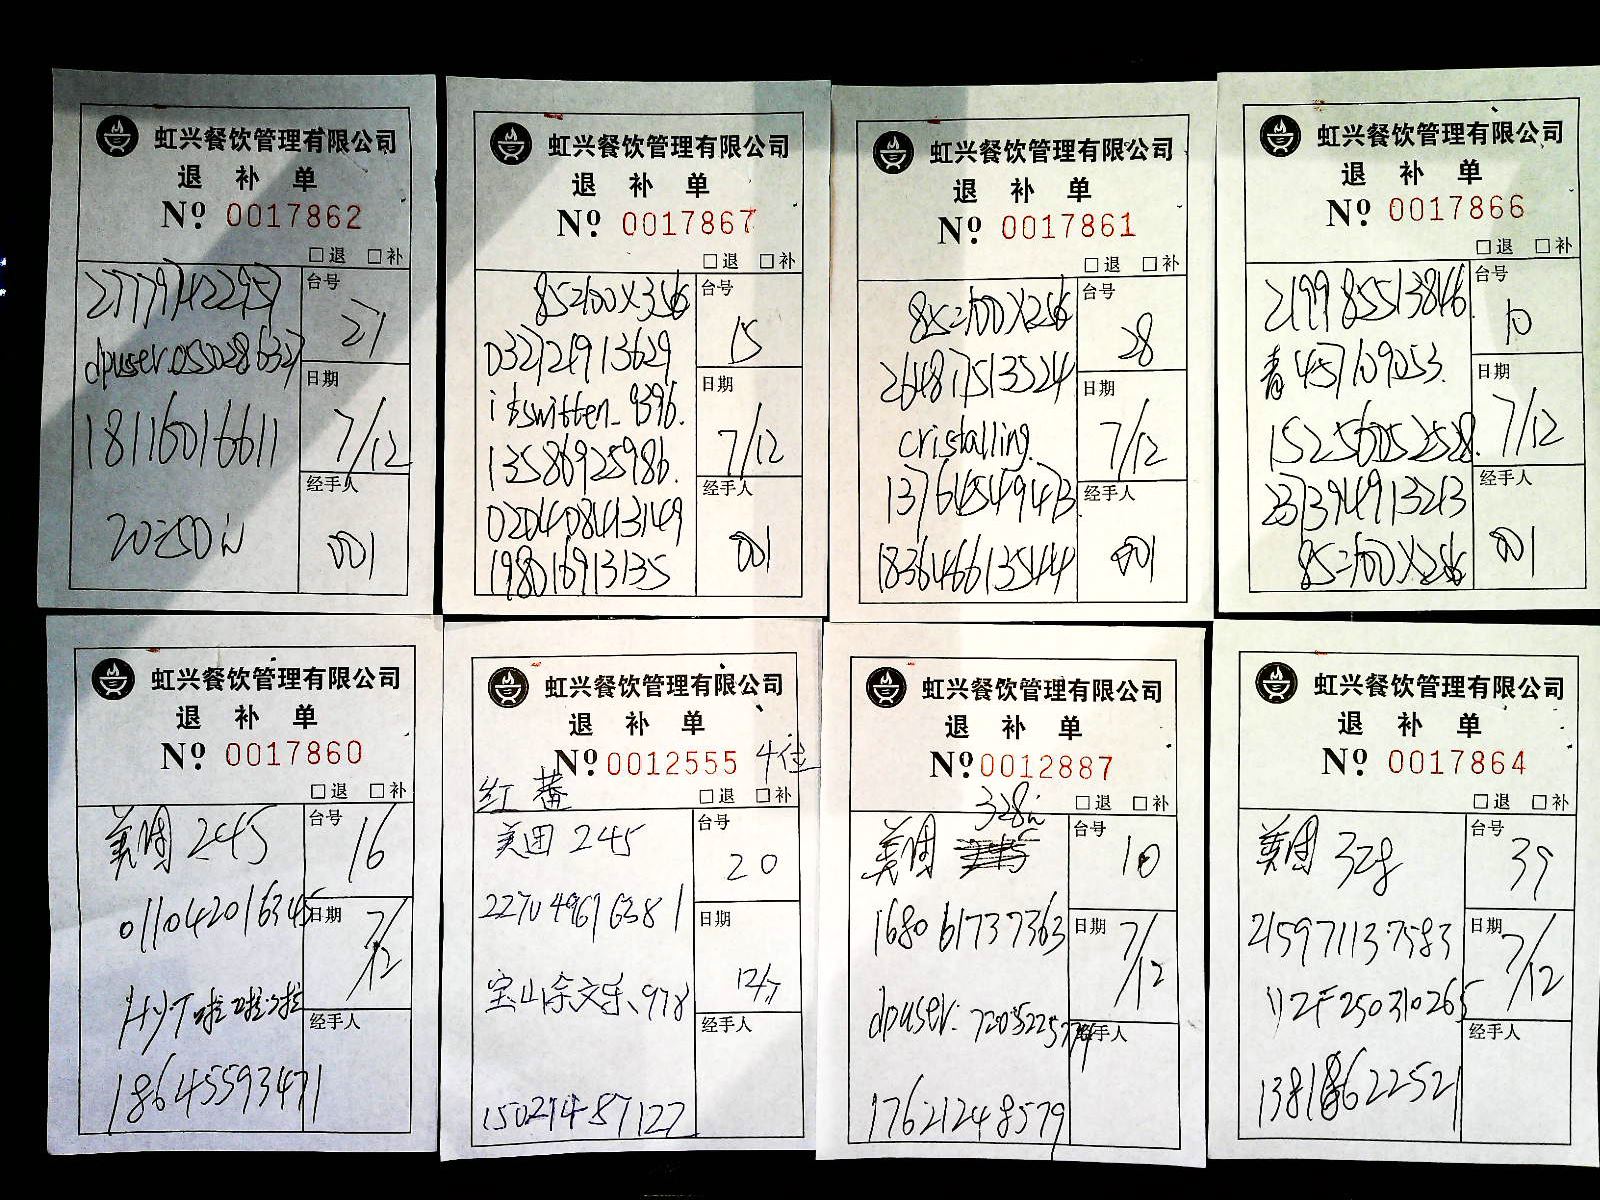 虹兴餐饮管理有限公司
退 补 单
Nº 0017862
□退 □补
台号
21
dpuser.0550286327
日期
7/12
18116016611
经手人
001
虹兴餐饮管理有限公司
退 补 单
Nº 0017867
□退 □补
85=100X3
台号
15
032724913629
日期
7/12
13586925986.
经手人
001
0204084413149
虹兴餐饮管理有限公司
退 补 单
Nº 0017861
□退 □补
85=100X2
台号
28
264817513524
cristalling.
日期
7/12
13764549473
经手人
001
1836466135444
虹兴餐饮管理有限公司
退 补 单
Nº 0017866
□退 □补
2199 85513846
台号
10
青457109053.
日期
7/12
15256052528.
经手人
001
85=100X2
虹兴餐饮管理有限公司
退 补 单
Nº 0017860
□退 □补
美团 245
台号
16
011042016345
日期
7/12
HYT啦啦啦
经手人
18645593471
虹兴餐饮管理有限公司
退 补 单
Nº 0012555 4位
□退 □补
美团 245
台号
20
日期
12/7
宝山余文乐、978
经手人
15021487127
虹兴餐饮管理有限公司
退 补 单
Nº 0012887
□退 □补
美团
台号
10
1680 61737363
日期
7/12
经手人
17621248579
虹兴餐饮管理有限公司
退 补 单
Nº 0017864
□退 □补
美团 328
台号
39
215971137583
日期
7/12
经手人
13818622521